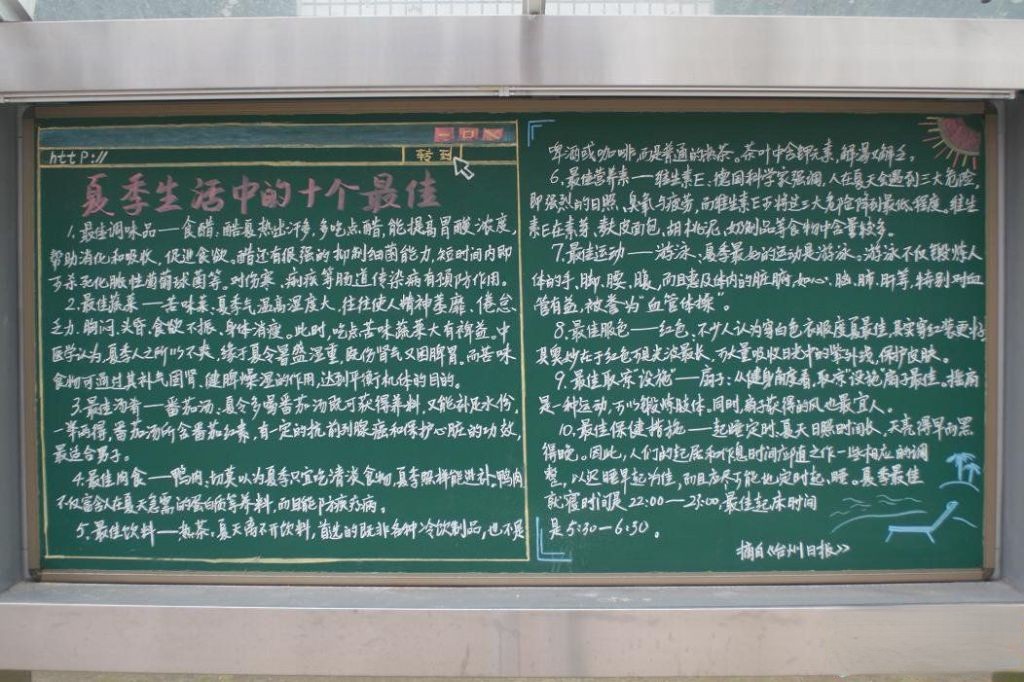 http://
转到
夏季生活中的十个最佳
1. 最佳调味品——食醋、酷夏热出汗多,多吃点醋,能提高胃酸浓度,
帮助消化和吸收,促进食欲。醋还有很强的抑制细菌能力,短时间内即
可杀死化脓性葡萄球菌等。对伤寒、痢疾等肠道传染病有预防作用。
2. 最佳蔬菜——苦味菜、夏季气温高湿度大,往往使人精神萎靡、倦怠
乏力、胸闷、头昏、食欲不振、身体消瘦。此时,吃点苦味蔬菜大有裨益。中
医学认为,夏季人之所以不爽,缘于夏令暑盛湿重,既伤肾气又困脾胃。而苦味
食物可通过其补气固肾、健脾燥湿的作用,达到平衡机体的目的。
3. 最佳汤肴——番茄汤:夏令多喝番茄汤既可获得养料,又能补足水份,
一举两得,番茄汤所含番茄红素,有一定的抗前列腺癌和保护心脏的功效,
最适合男子。
4. 最佳肉食——鸭肉、切莫以为夏季只宜吃清淡食物,夏季照样能进补,鸭肉
不仅富含人在夏天急需的蛋白质等养料,而且能防疾疗病。
5. 最佳饮料——热茶。夏天离不开饮料,首选的既非各种冷饮制品,也不是
啤酒或咖啡,而是普通的热茶。茶叶中含钾元素,解暑又解乏。
6. 最佳营养素——维生素E:德国科学家强调,人在夏天会遇到三大危险,
即强烈的日照、臭氧与疲劳,而维生素E可将这三大危险降到最低程度。维生
素E在麦芽、麸皮面包、胡桃泥、奶制品等食物中含量较多。
7. 最佳运动——游泳、夏季最好的运动是游泳。游泳不仅锻炼人
体的手、脚、腰、腹,而且惠及体内的脏腑,如心、脑、肺、肝等,特别对血
管有益,被誉为“血管体操”。
8. 最佳服色——红色、不少人认为穿白色衣服度夏最佳,其实穿红装更好
其奥妙在于红色可见光波最长,可大量吸收日光中的紫外线,保护皮肤。
9. 最佳取凉“设施”——扇子:从健身角度看,取凉“设施”扇子最佳。摇扇
是一种运动,可以锻炼肢体。同时,扇子获得的风也最宜人。
10. 最佳保健措施——起睡定时、夏天日照时间长,天亮得早而黑
得晚。因此,人们的起居和作息时间应随之作一些相应的调
整,以迟睡早起为佳,而且应尽可能也定时起、睡。夏季最佳
就寝时间是22:00—23:00,最佳起床时间
是5:30—6:30。
摘自《台州日报》